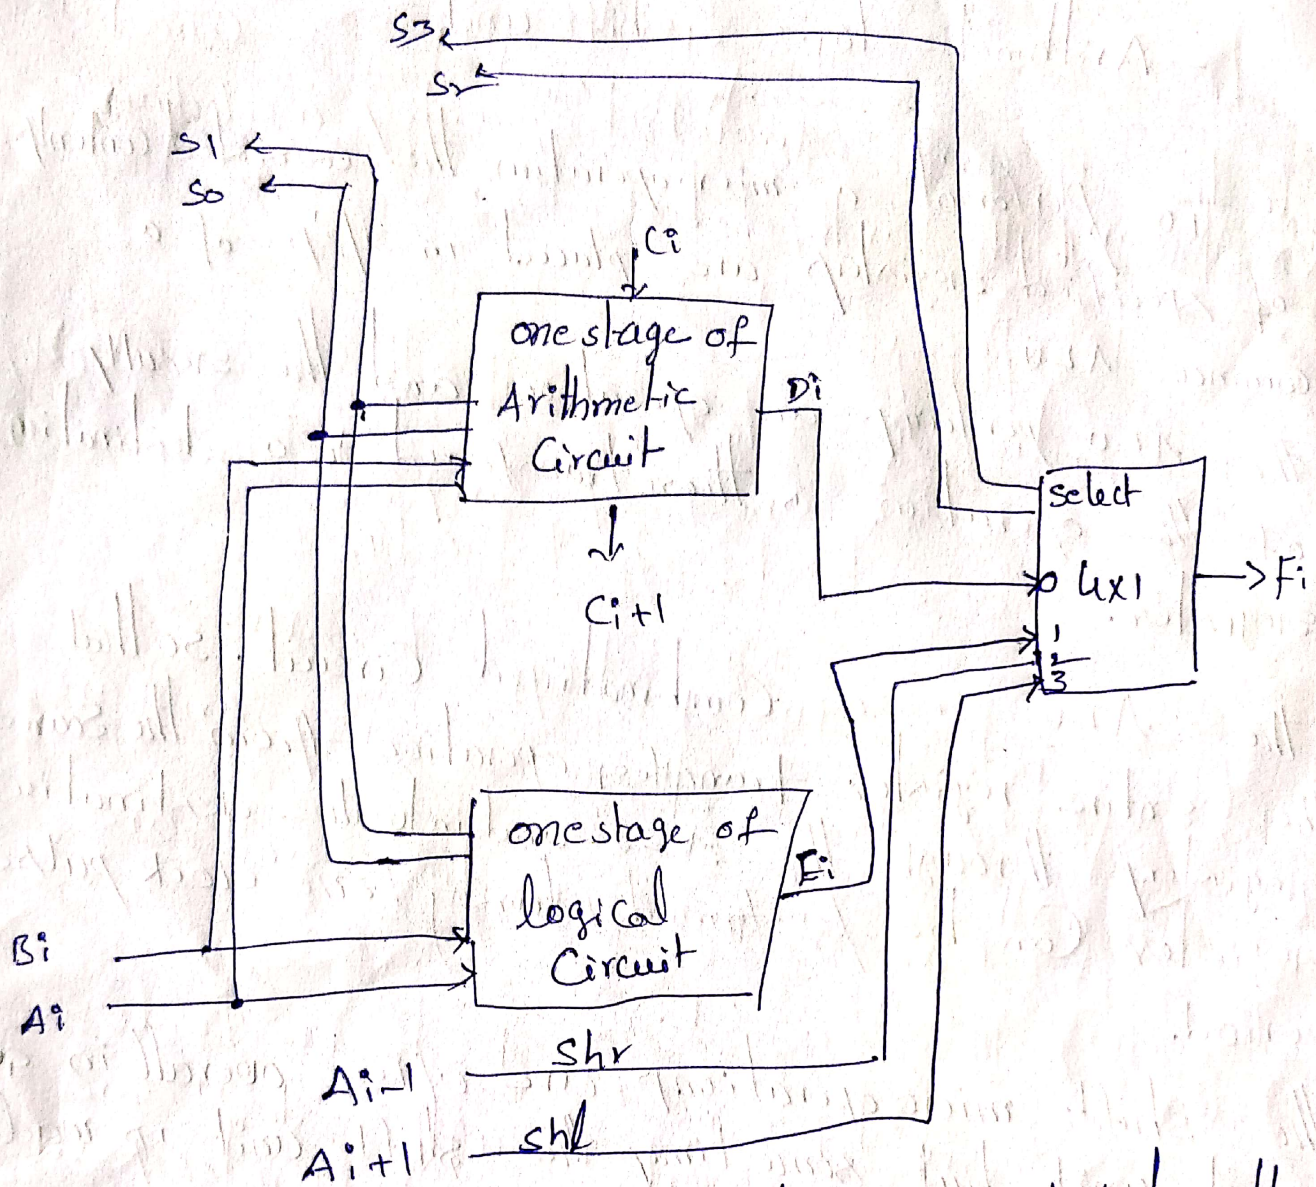 S3
S2
S1
S0
Ci
one stage of
Arithmetic
Circuit
Di
select
0 4x1
Fi
1
2
3
Ci+1
one stage of
logical
Circuit
Ei
Bi
Ai
shr
Ai-1
shl
Ai+1